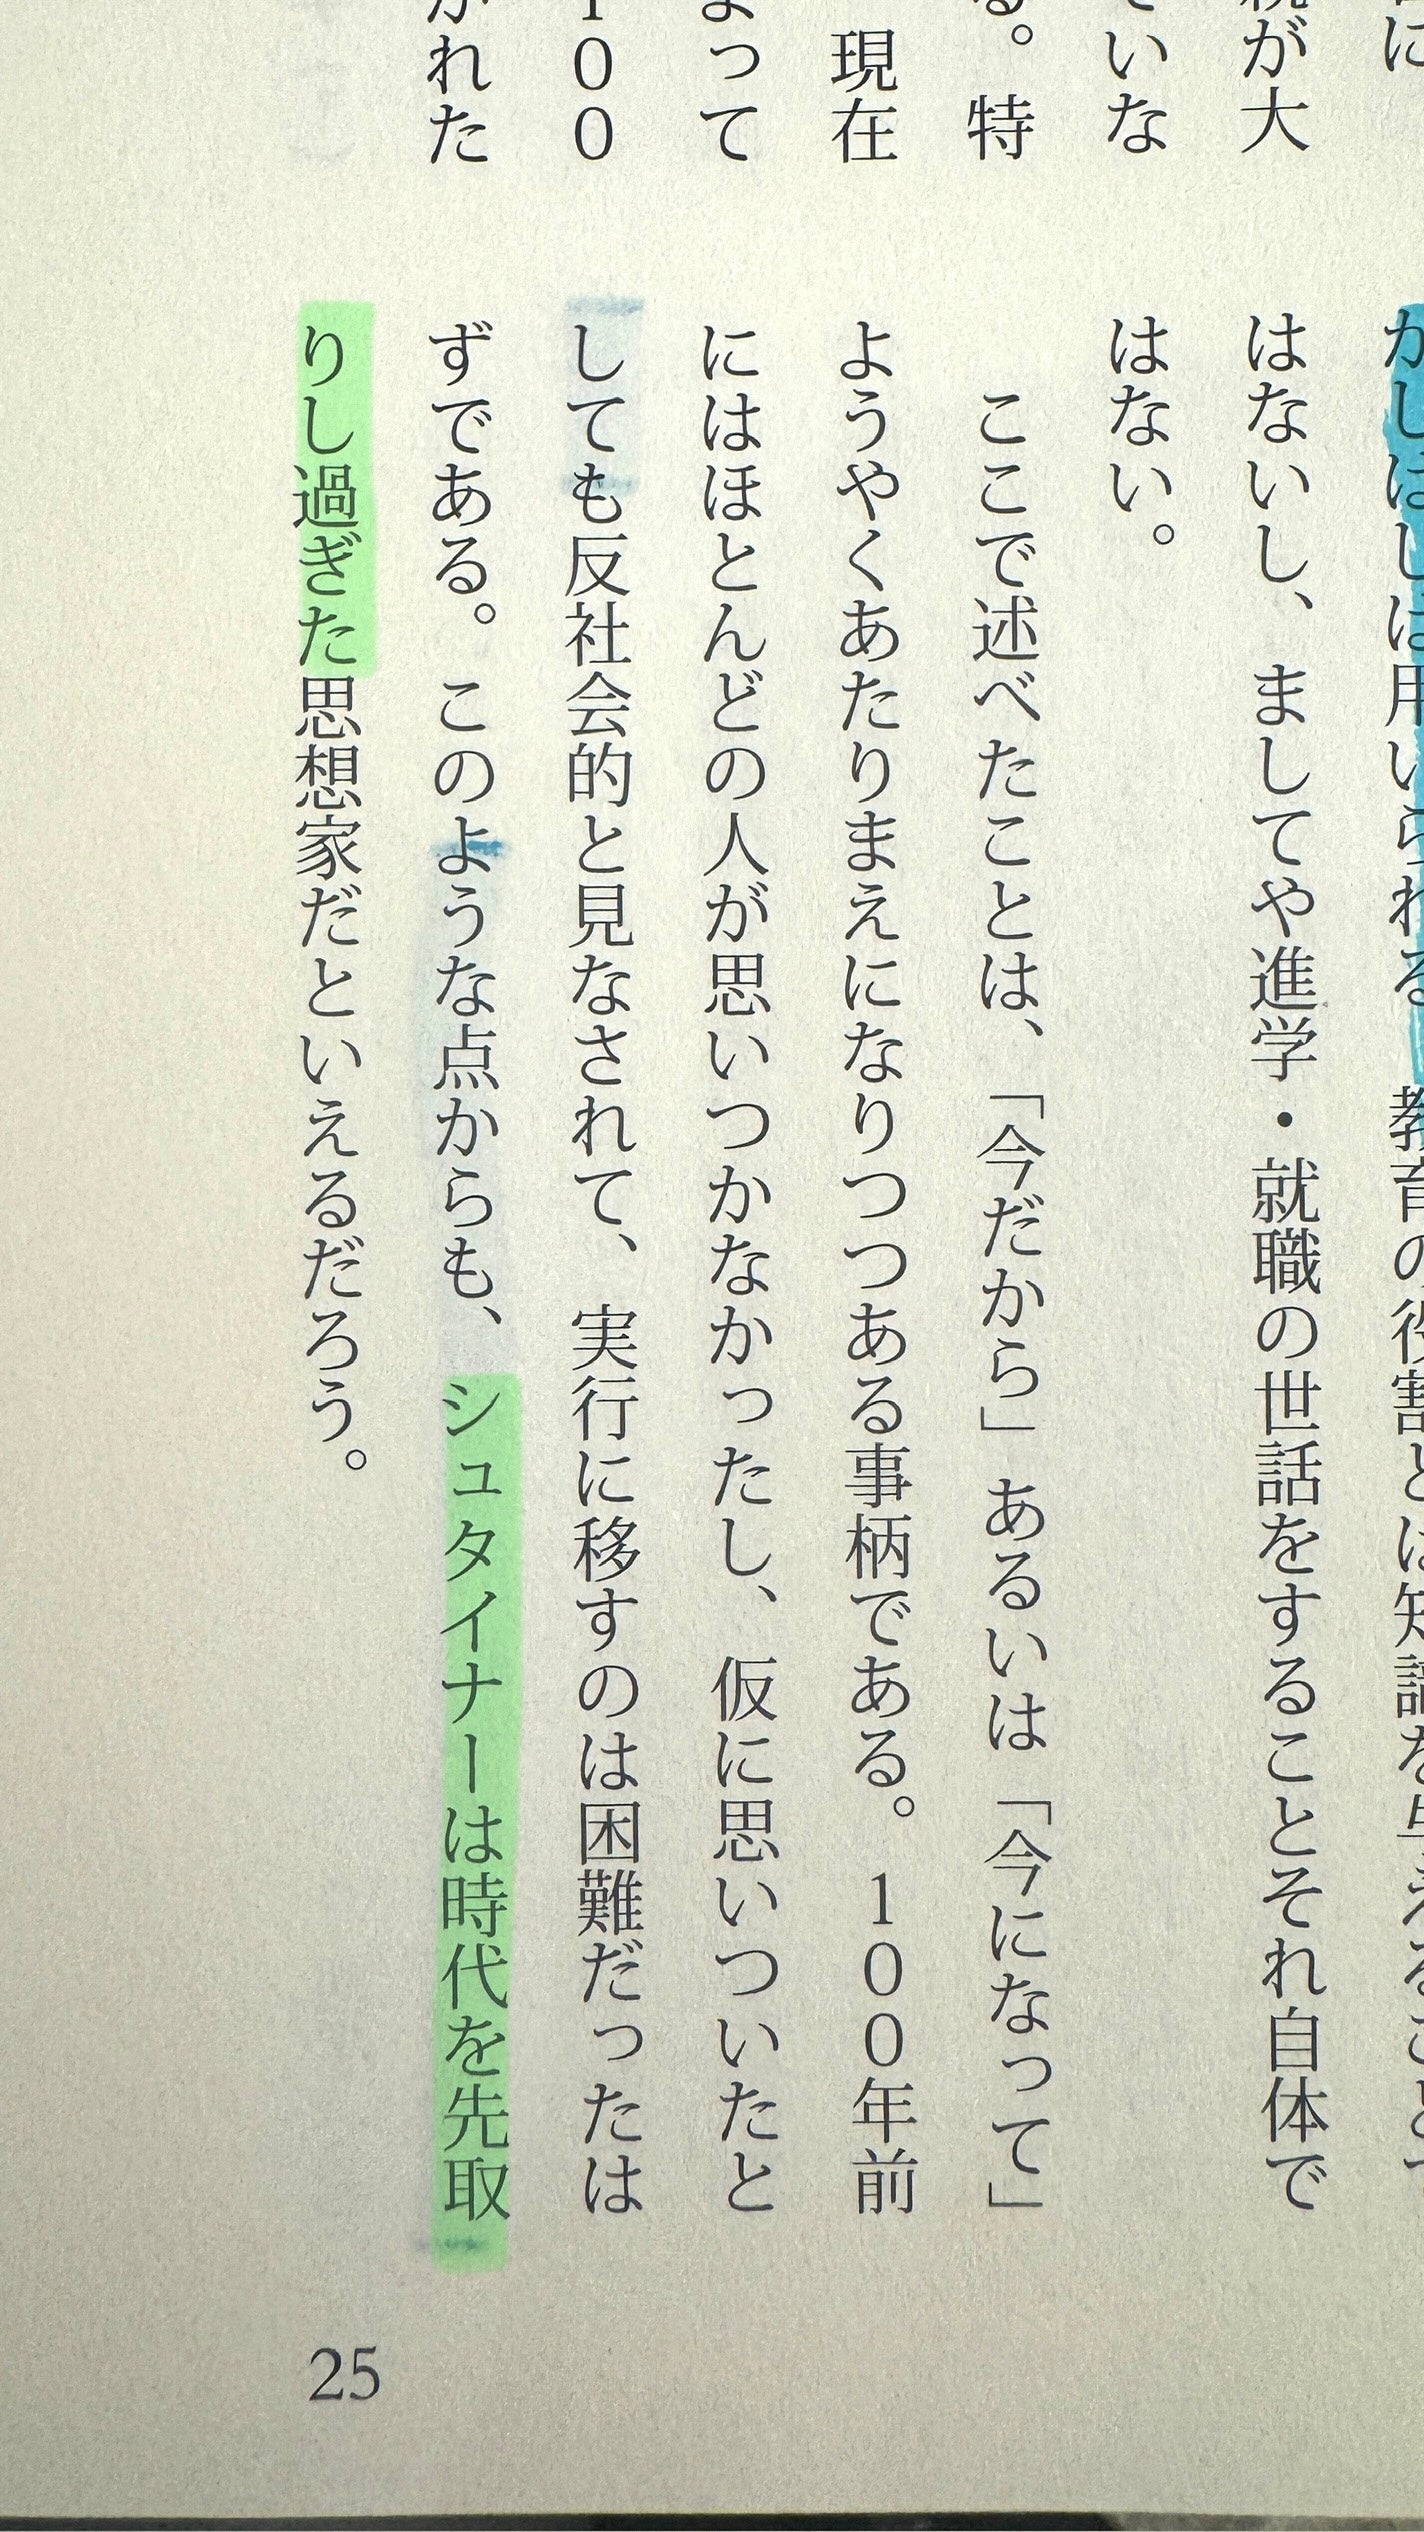 に
が大
いな
る。特
現在
よって
１００
かれた
しばしば用いられる 教育の役割とは知識を与えることで
はないし、ましてや進学・就職の世話をすることそれ自体で
はない。
ここで述べたことは、「今だから」あるいは「今になって」
ようやくあたりまえになりつつある事柄である。１００年前
にはほとんどの人が思いつかなかったし、仮に思いついたと
しても反社会的と見なされて、実行に移すのは困難だったは
ずである。このような点からも、シュタイナーは時代を先取
りし過ぎた思想家だといえるだろう。
25